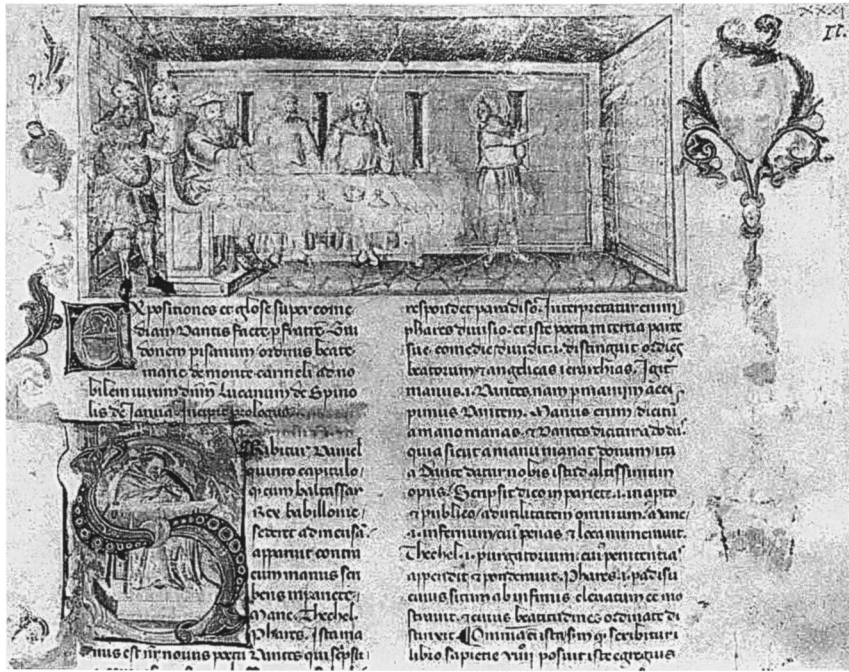 Expositiones et glose super come
diam Dantis facte p fratrē Gui
donem pisanum ordinis beate
marie de monte carmeli ad no
bilem uirum dnm̄ Lucanum de Spino
lis de Janua. Incipit prologus.
Scribitur Daniel
quinto capitulo /
q cum baltassar
Rex babillonie /
sederet ad mensā /
apparuit contra
eum manus scri
bens in pariete.
Mane. Thechel.
Phares. Ista ma
nus est nr̄ nouus poeta Dantes qui scripsit
respondet paradiso. Interpretatur enim
phares diuisio. et iste poeta in tertia parte
sue comedie diuidit .i. distinguit ordies
beatorum et angelicas ierarchias. Igit
manus .i. Dantes. nam p manum acci
pimus Dantem. Manus enim dicit̄
a mano manas. et Dantes dicitur a do das
quia sicut a manu manat donum / ita
a Dante datur nobis istud altissimum
opus. Scripsit dico in pariete .i. in apto
et publico / ad utilitatem omnium. Mane
.i. infernum / cuius penas et loca numerauit.
Thechel .i. purgatorium. cuius penitentiā
appendit et ponderauit. Phares .i. padisū
cuius situm ab infimis eleuatum demo
strauit. et eius beatitudines ordinate di
stinxit. Omnia
libro sapientie posuit iste egregius